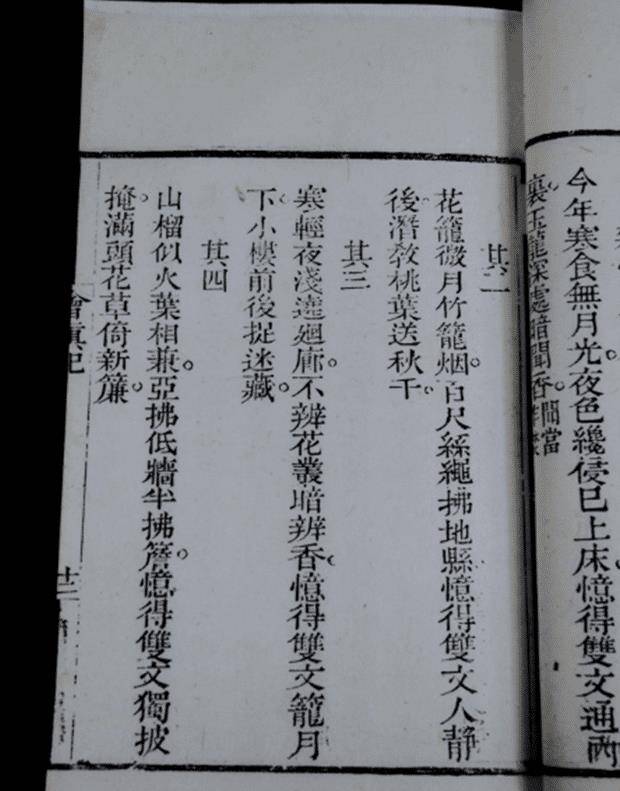 今年寒食無月光。夜色纔侵已上床。憶得雙文通內
裏。玉籠深處暗聞香。
其二
花籠微月竹籠烟。百尺絲繩拂地縣憶得雙文人靜
後。潛教桃葉送秋千。
其三
寒輕夜淺遶廻廊。不辨花叢暗辨香。憶得雙文籠月
下。小樓前後捉迷藏。
其四
山榴似火葉相兼。亞拂低牆半拂簷。憶得雙文獨披
掩。滿頭花草倚新簾。
會真記